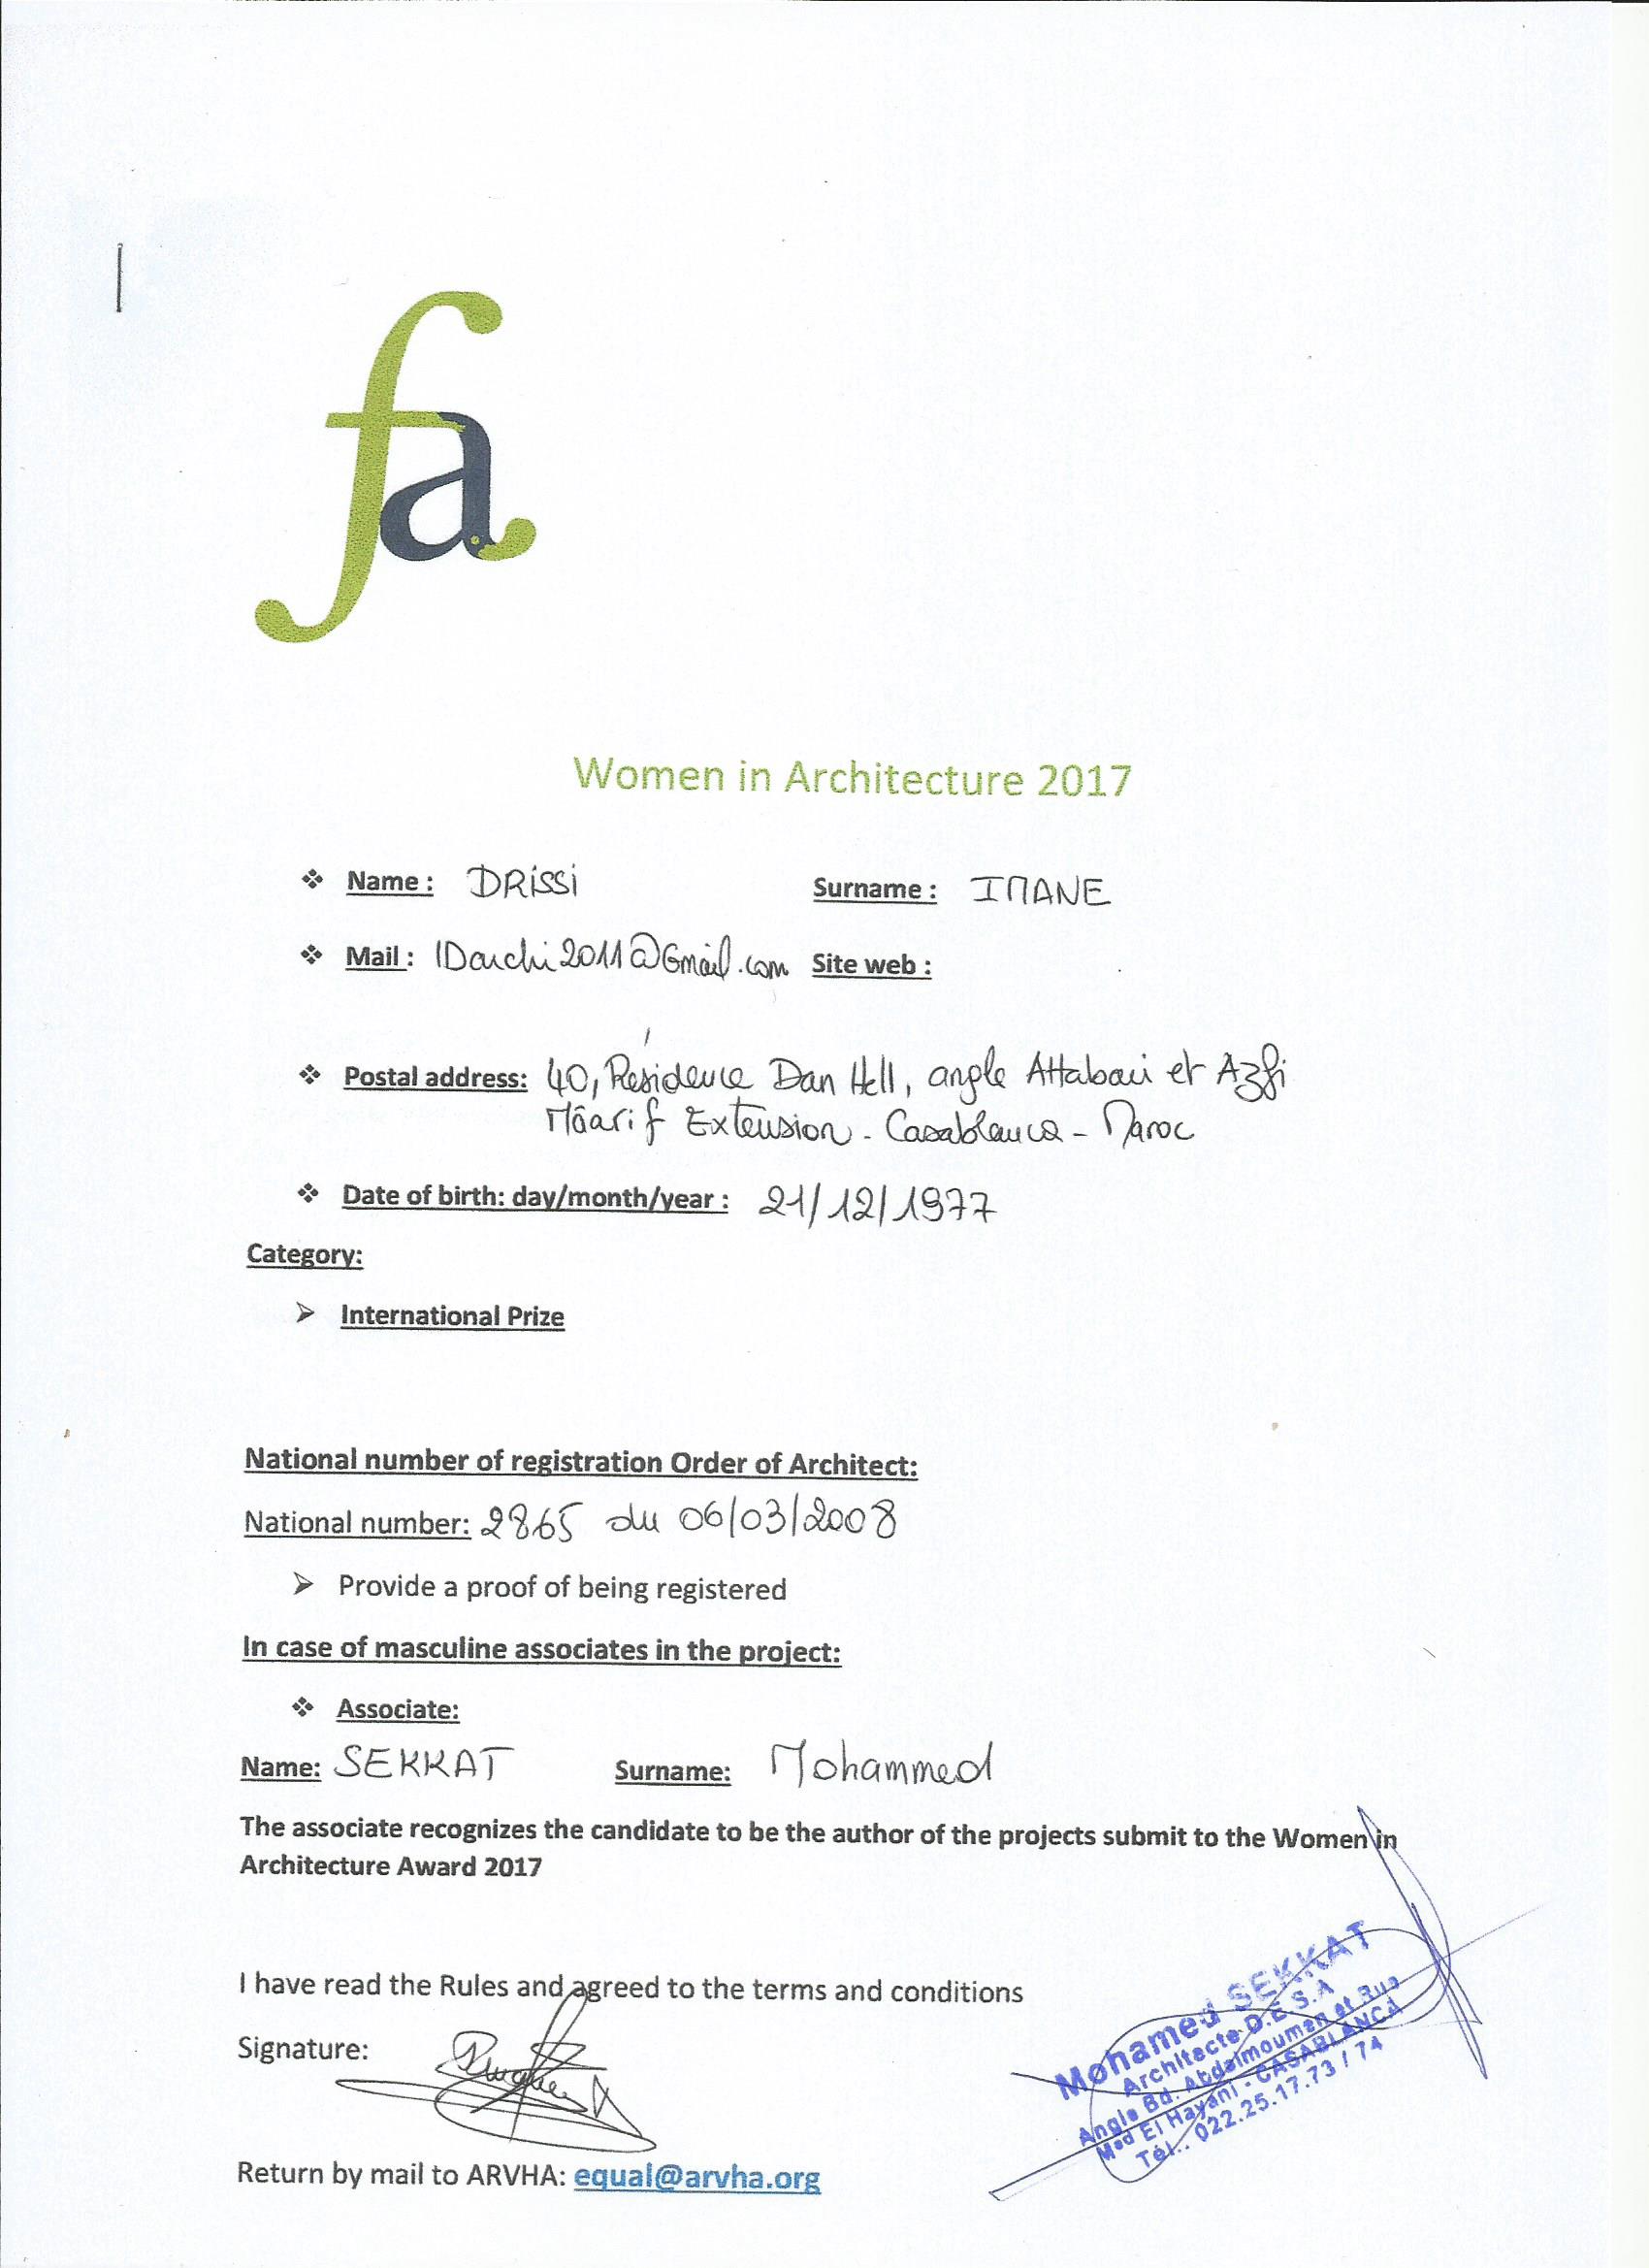 fa
Women in Architecture 2017
❖ Name : DRissi Surname : IMANE
❖ Mail : IDarchi2011@Gmail.com Site web :
❖ Postal address: 40, Résidence Dan Hell, angle Attabari et Azfi
Mâarif Extension - Casablanca - Maroc
❖ Date of birth: day/month/year : 21/12/1977
Category:
➢ International Prize
National number of registration Order of Architect:
National number: 2865 du 06/03/2008
➢ Provide a proof of being registered
In case of masculine associates in the project:
❖ Associate:
Name: SEKKAT Surname: Mohammed
The associate recognizes the candidate to be the author of the projects submit to the Women in
Architecture Award 2017
I have read the Rules and agreed to the terms and conditions
Signature:
Mohamed SEKKAT
Architecte D.E.S.A
Angle Bd. Abdelmoumen et Rue
Med El Hayani - CASABLANCA
Tél.. 022.25.17.73 / 74
Return by mail to ARVHA: equal@arvha.org